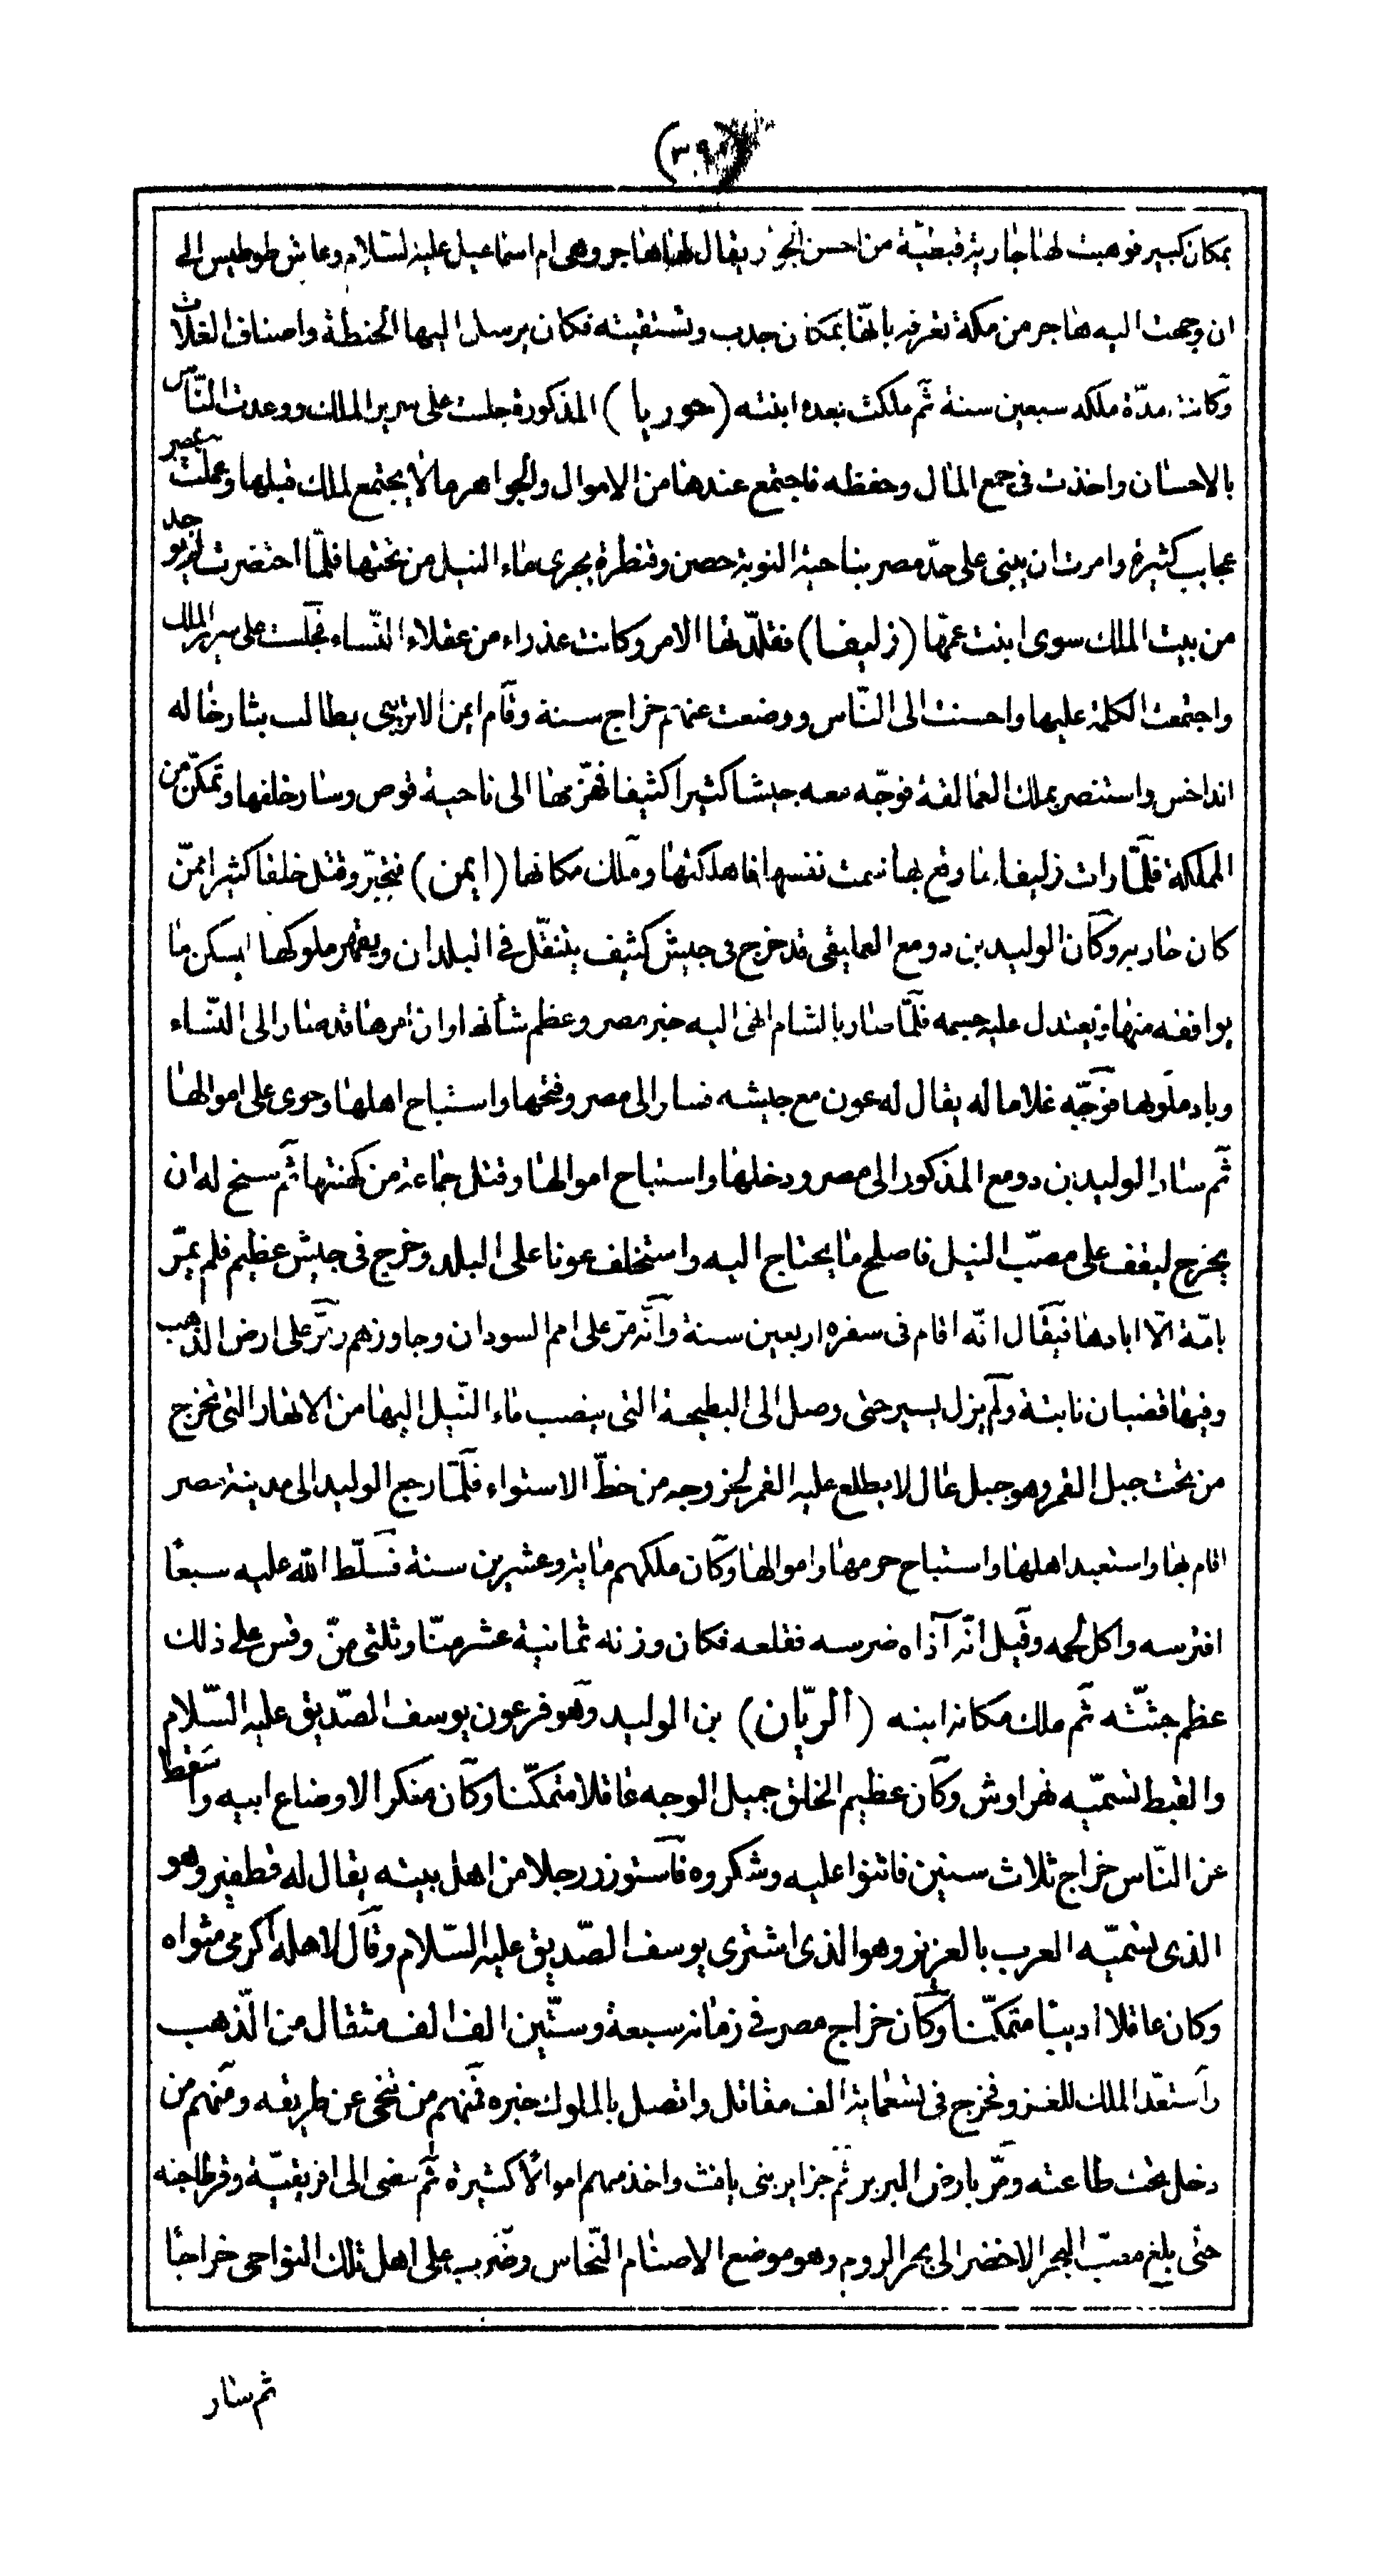 (٣٩٠)
بمكان كبير فوهبت لها جارية قبطية من احسن الجوار يقال لها هاجر وهى ام اسماعيل عليه السّلام وعاش طوطيس الى
ان وجهت اليه هاجر من مكة تعرفه بانّها بمكان جدب وتستغيثه فكان يرسل اليها الحنطة واصناف الغلات
وكانت مدّة ملكه سبعين سنة ثم ملكت بعده ابنته (حوريا) المذكورة جلست على سرير الملك ووعدت النّاس
بالاحسان واخذت فى جمع المال وحفظه فاجتمع عندها من الاموال والجواهر ما لا يجتمع لملك قبلها وعملت بمصر
عجايب كثيرة وامرت ان يبنى على حدّ مصر بناحية النوبة حصن وقنطرة يجرى ماء النيل من تحتها فلمّا احتضرت لم يوجد
من بيت الملك سوى ابنت عمّها (زليفا) فقلّدتها الامر وكانت عذراء من عقلاء النّساء فجلست على سرير الملك
واجتمعت الكلمة عليها واحسنت الى النّاس ووضعت عنهم خراج سنة وقام ايمن الاتريبى يطالب بثار خاله
انداخس واستنصر بملك العمالقة فوجّه معه جيشا كثيرا كثيفا فهزمها الى ناحية قوص وسار خلفها وتمكّن من
المملكة فلمّا رات زليفا ما وقع بها سمت نفسها فاهلكتها وملك مكانها (ايمن) فتجبّر وقتل خلقا كثيرا ممّن
كان حاربه وكان الوليد بن دومع العمليقى قد خرج فى جيش كثيف يتنقّل فى البلدان ويقهر ملوكها ليسكن ما
يوافقه منها ويعتدل عليه جسمه فلمّا صار بالشام انهى اليه خبر مصر وعظم شأنها وان امرها قد صار الى النّساء
وباد ملوكها فوجّه غلاما له يقال له عون مع جيشه فسار الى مصر وفتحها واستباح اهلها وحوى على اموالها
ثم سار الوليد بن دومع المذكور الى مصر ودخلها واستباح اموالها وقتل جماعة من كهنتها ثم سنح له ان
يخرج ليقف على مصبّ النيل فاصلح ما يحتاج اليه واستخلف عونا على البلد وخرج فى جيش عظيم فلم يمرّ
بامّة الّا ابادها فيقال انّه اقام فى سفره اربعين سنة وانّه مرّ على امم السودان وجاوزهم ومرّ على ارض الذهب
وفيها قضبان نابتة ولم يزل يسير حتى وصل الى البطيحة التى ينصب ماء النّيل اليها من الانهار التى تخرج
من تحت جبل القمر وهو جبل عال لا يطلع عليه القمر لخروجه من خطّ الاستواء فلمّا رجع الوليد الى مدينة مصر
اقام بها واستعبد اهلها واستباح حرمها واموالها وكان ملكهم مائة وعشرين سنة فسلّط اللّه عليه سبعًا
افترسه واكل لحمه وقيل انّه آذاه ضرسه فقلعه فكان وزنه ثمانية عشر منّا وثلثى منّ وقس على ذلك
عظم جثّته ثم ملك مكانه ابنه (الريّان) بن الوليد وهو فرعون يوسف الصّديق عليه السّلام
والقبط تسمّيه نهراوش وكان عظيم الخلق جميل الوجه عاقلا متمكّنا وكان منكرا لاوضاع ابيه واسقط
عن النّاس خراج ثلاث سنين فاثنوا عليه وشكروه فاستوزر رجلا من اهل بيته يقال له قطفير وهو
الذى تسمّيه العرب بالعزيز وهو الذى اشترى يوسف الصّديق عليه السّلام وقال لاهله اكرمى مثواه
وكان عاقلا اديبا متمكّنا وكان خراج مصر فى زمانه سبعة وستّين الف الف مثقال من الذّهب
واستعدّ الملك للغزو فخرج فى تسعماية الف مقاتل واتصل بالملوك خبره فمنهم من تنحّى عن طريقه ومنهم من
دخل تحت طاعته ومرّ بارض البربر ثم جزاير بنى يافث واخذ منهم اموالًا كثيرة ثم مضى الى افريقيّة وقرطاجنه
حتى بلغ مصبّ البحر الاخضر الى بحر الروم وهو موضع الاصنام النّحاس وضرب على اهل تلك النواحى خراجًا
ثم سار